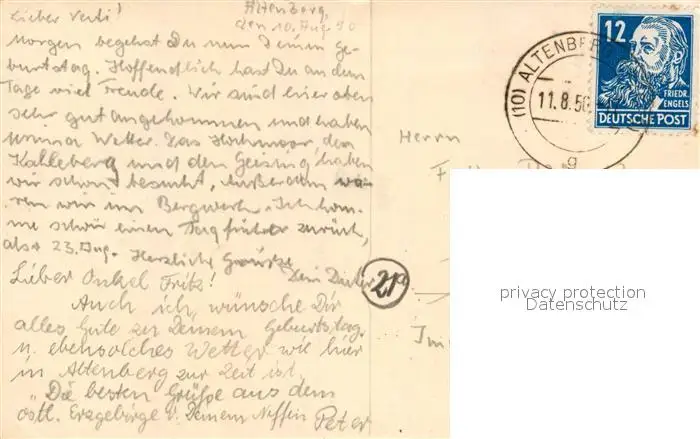 Lieber Vati!
Altenberg,
den 10. Aug. 50
Morgen begehst Du nun Deinen Ge-
burtstag. Hoffendlich hast Du an dem
Tage viel Freude. Wir sind hier oben
sehr gut angekommen und haben
prima Wetter. Das Hochmoor, den
Kahleberg und den Geising haben
wir schon besucht, Außerdem wa-
ren wir im Bergwerk. Ich kom-
me schon einen Tag früher zurück,
also 23. Aug. Herzliche Grüße
Dein Dieter
Lieber Onkel Fritz!
Auch ich wünsche Dir
alles Gute zu Deinem Geburtstag
u. ebensolches Wetter wie hier
in Altenberg zur Zeit ist.
Die besten Grüße aus dem
östl. Erzgebirge v. Deinem Neffen Peter
21a
Herrn
12
FRIEDR.
ENGELS
DEUTSCHE POST
(10) ALTENBER
11.8.50
g
privacy protection
Datenschutz